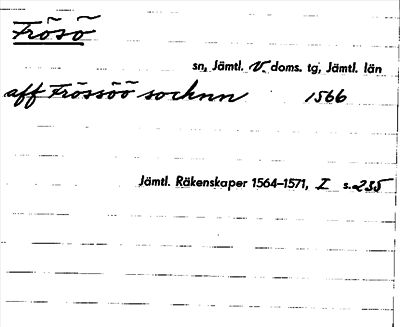 Frösö
sn, Jämtl. V. doms. tg, Jämtl. län
aff Frössöö sochnn 1566
Jämtl. Räkenskaper 1564–1571, I s. 235